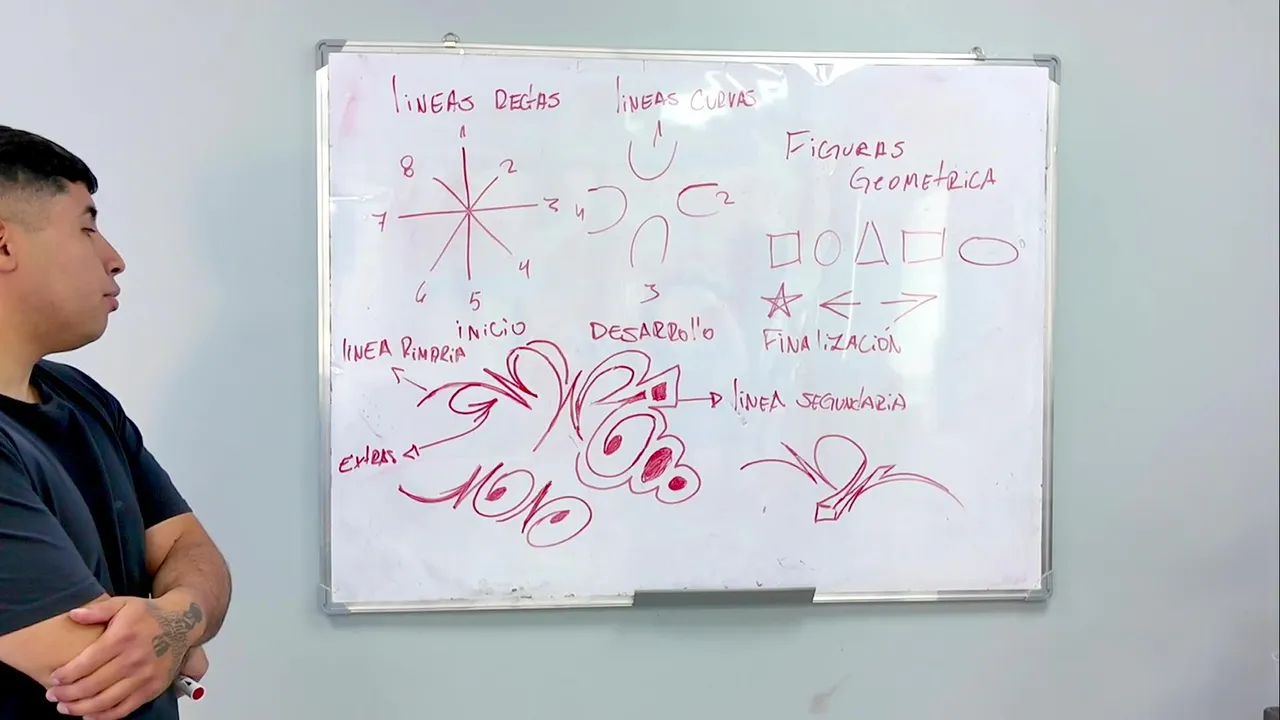 LINEAS RECTAS
1
2
3
4
5
6
7
8
LINEAS CURVAS
1
2
3
4
FIGURAS
GEOMETRICA
INICIO
DESARROLLO
FINALIZACIÓN
LINEA PIMARIA
LINEA SEGUNDARIA
EXTRAS